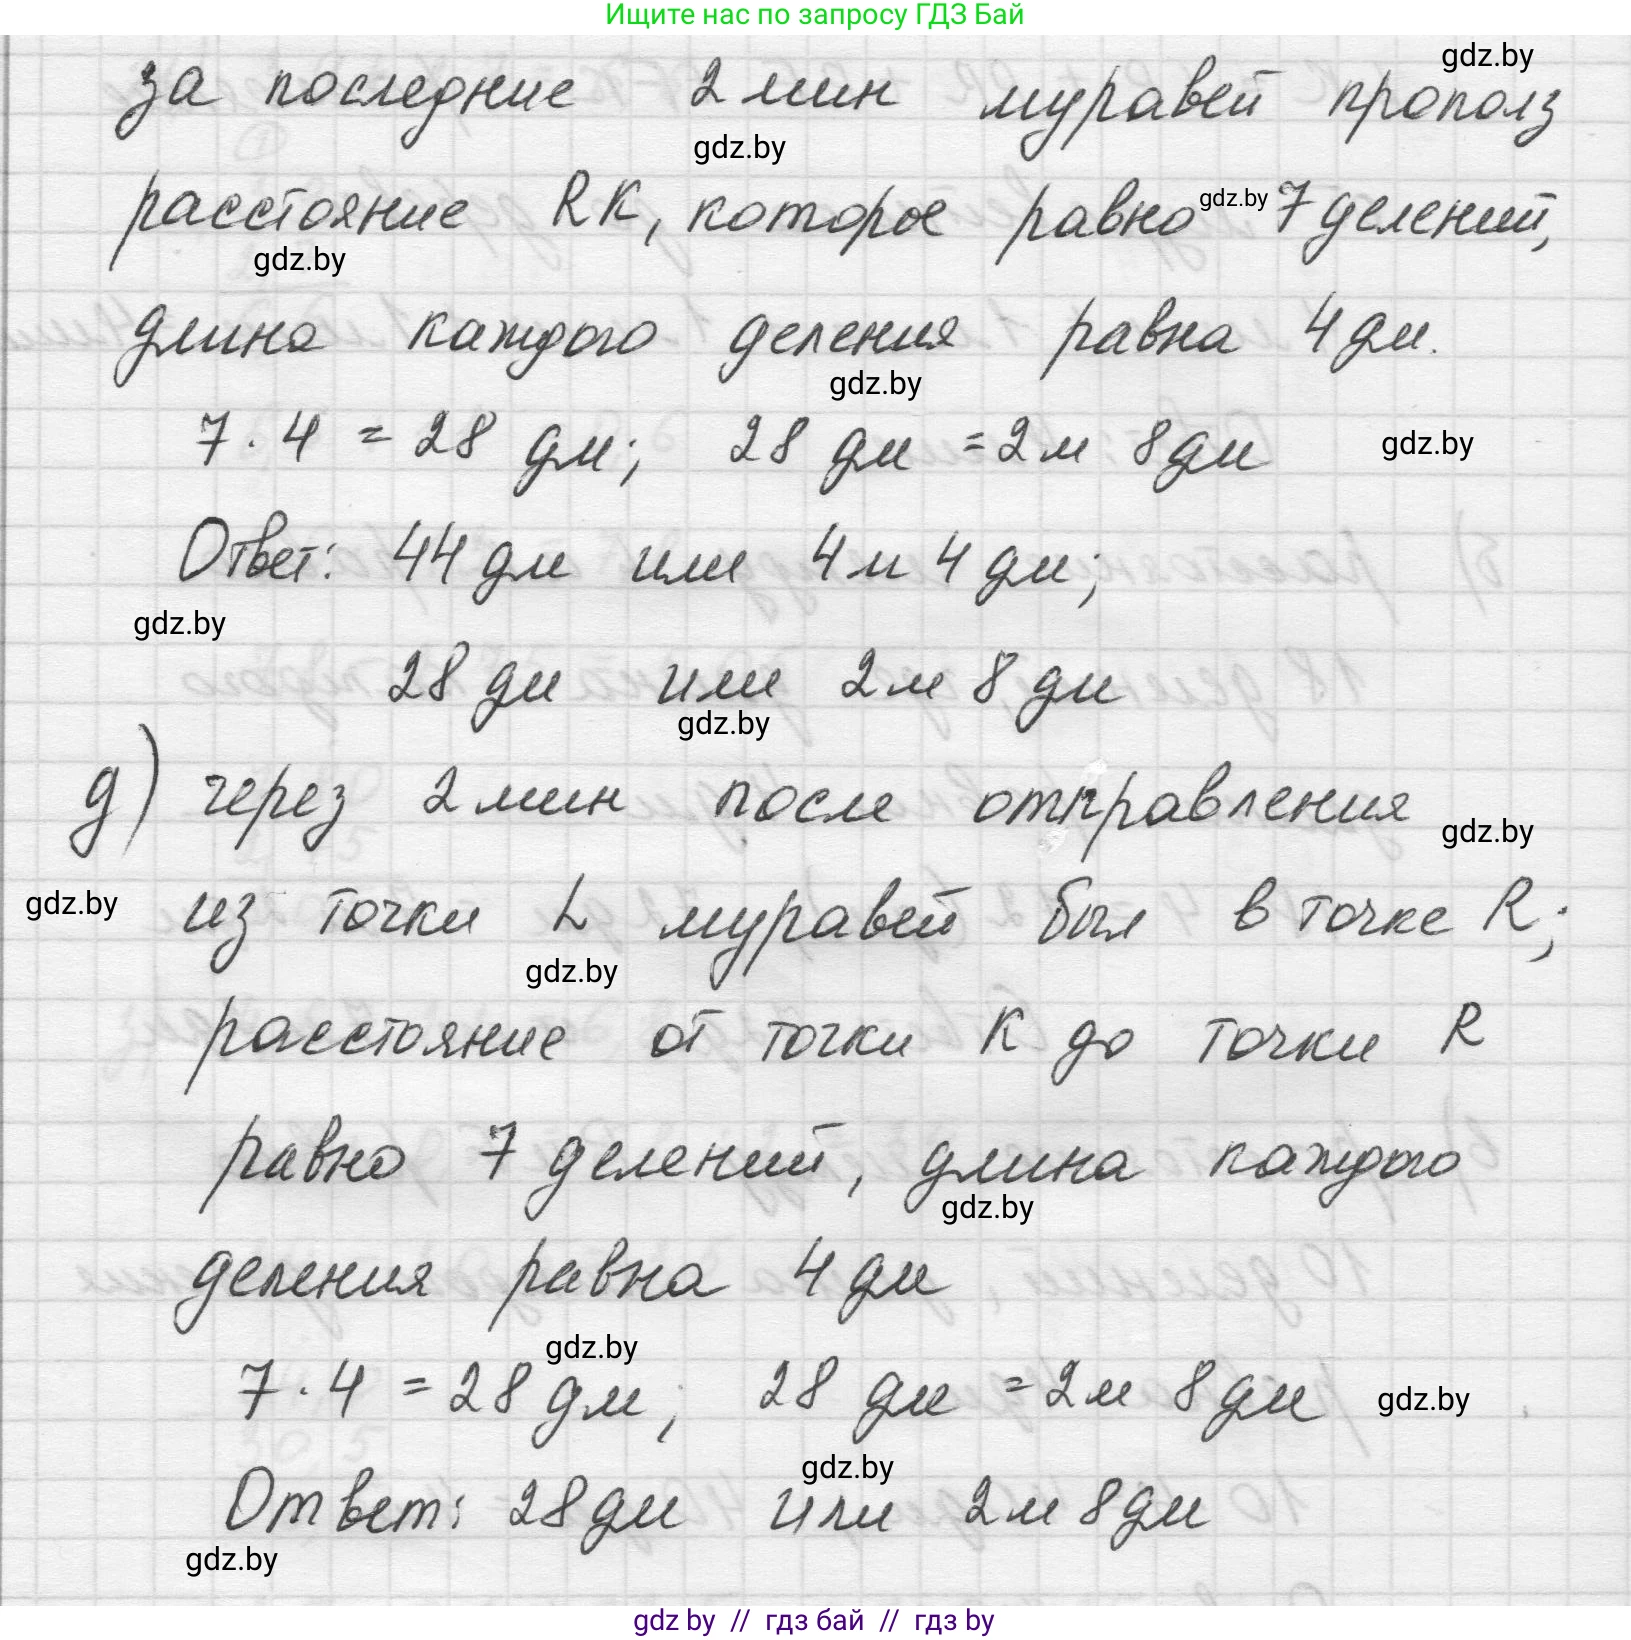 Ищите нас по запросу ГДЗ Бай
gdz.by
за последние 2 мин муравей прополз
gdz.by
расстояние RK, которое равно 7 делений,
gdz.by
gdz.by
длина каждого деления равна 4 дм.
gdz.by
7 · 4 = 28 дм; 28 дм = 2 м 8 дм
gdz.by
Ответ: 44 дм или 4 м 4 дм;
gdz.by
28 дм или 2 м 8 дм
gdz.by
д) через 2 мин после отправления
gdz.by
gdz.by
из точки L муравей был в точке R;
gdz.by
расстояние от точки K до точки R
равно 7 делений, длина каждого
gdz.by
деления равна 4 дм
gdz.by
7 · 4 = 28 дм; 28 дм = 2 м 8 дм
gdz.by
gdz.by
Ответ: 28 дм или 2 м 8 дм
gdz.by
gdz by // гдз бай // гдз by